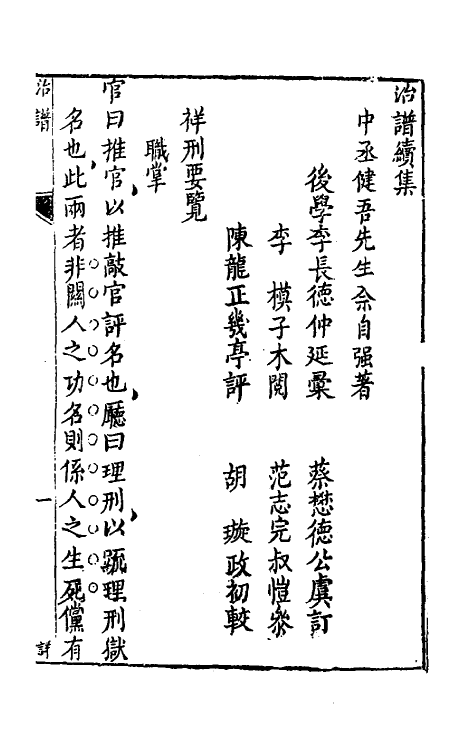 治譜續集
中丞健吾先生佘自强著
後學李長德仲延彙 蔡懋德公虞訂
李 模子木閱 范志完叔愷參
陳龍正幾亭評 胡 璇政初較
祥刑要覽
職掌
官曰推官以推敲官評名也廳曰理刑以䟽理刑獄
名也此兩者非關人之功名則係人之生死儻有
治譜
一